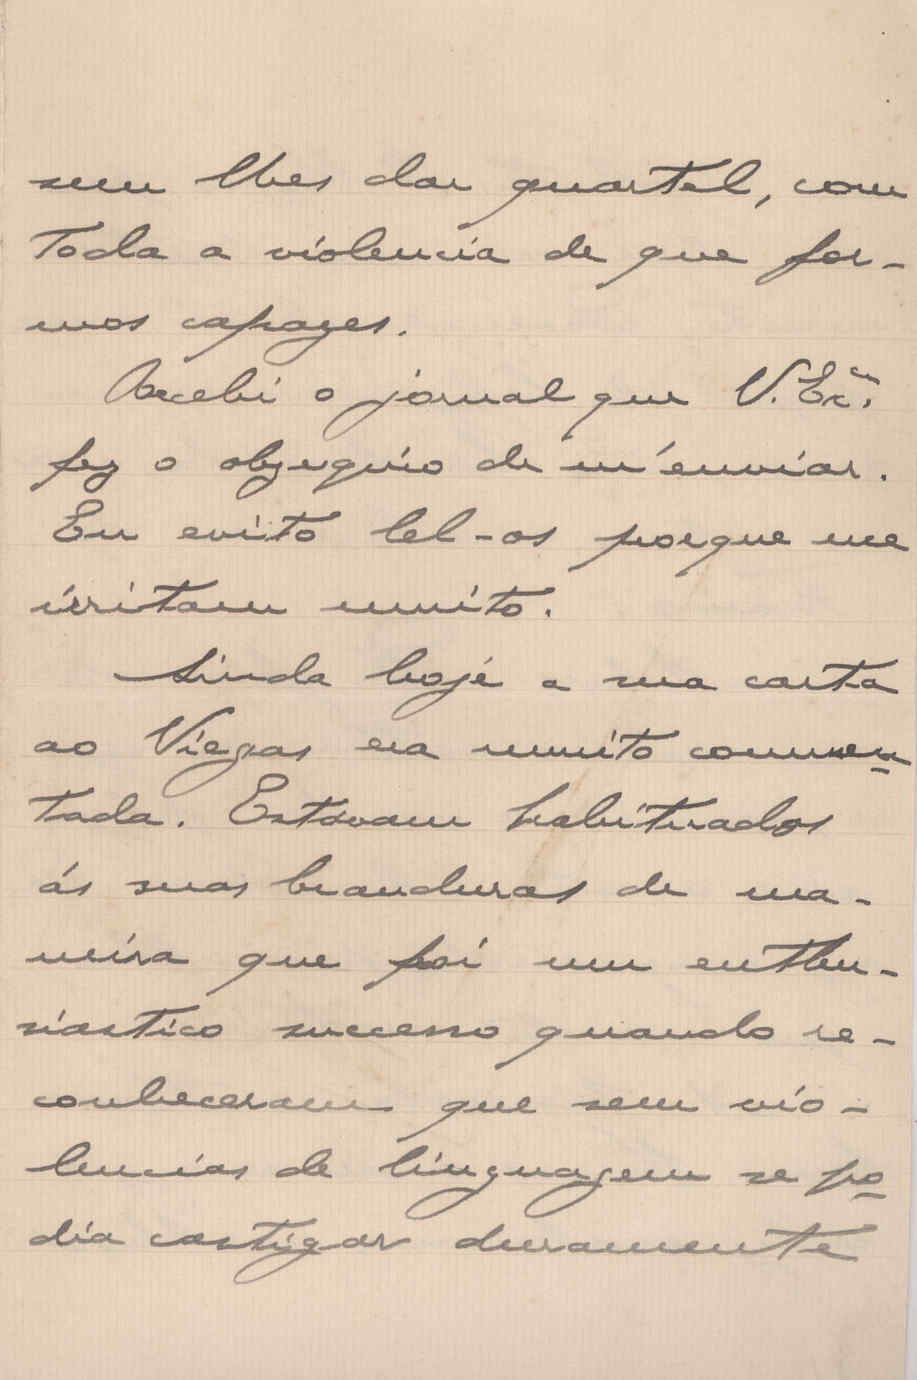 sem lhes dar quartel, com
toda a violencia de que for-
mos capazes.
Recebi o jornal que V. Ex.ª
fez o obzequio de m'enviar.
Eu evito lel-os porque me
irritam muito.
Ainda hoje a sua carta
ao Viegas era muito commen-
tada. Estavam habituados
ás suas branduras de ma-
neira que foi um enthu-
siastico successo quando re-
conheceram que sem vio-
lencias de linguagem se po-
dia castigar duramente